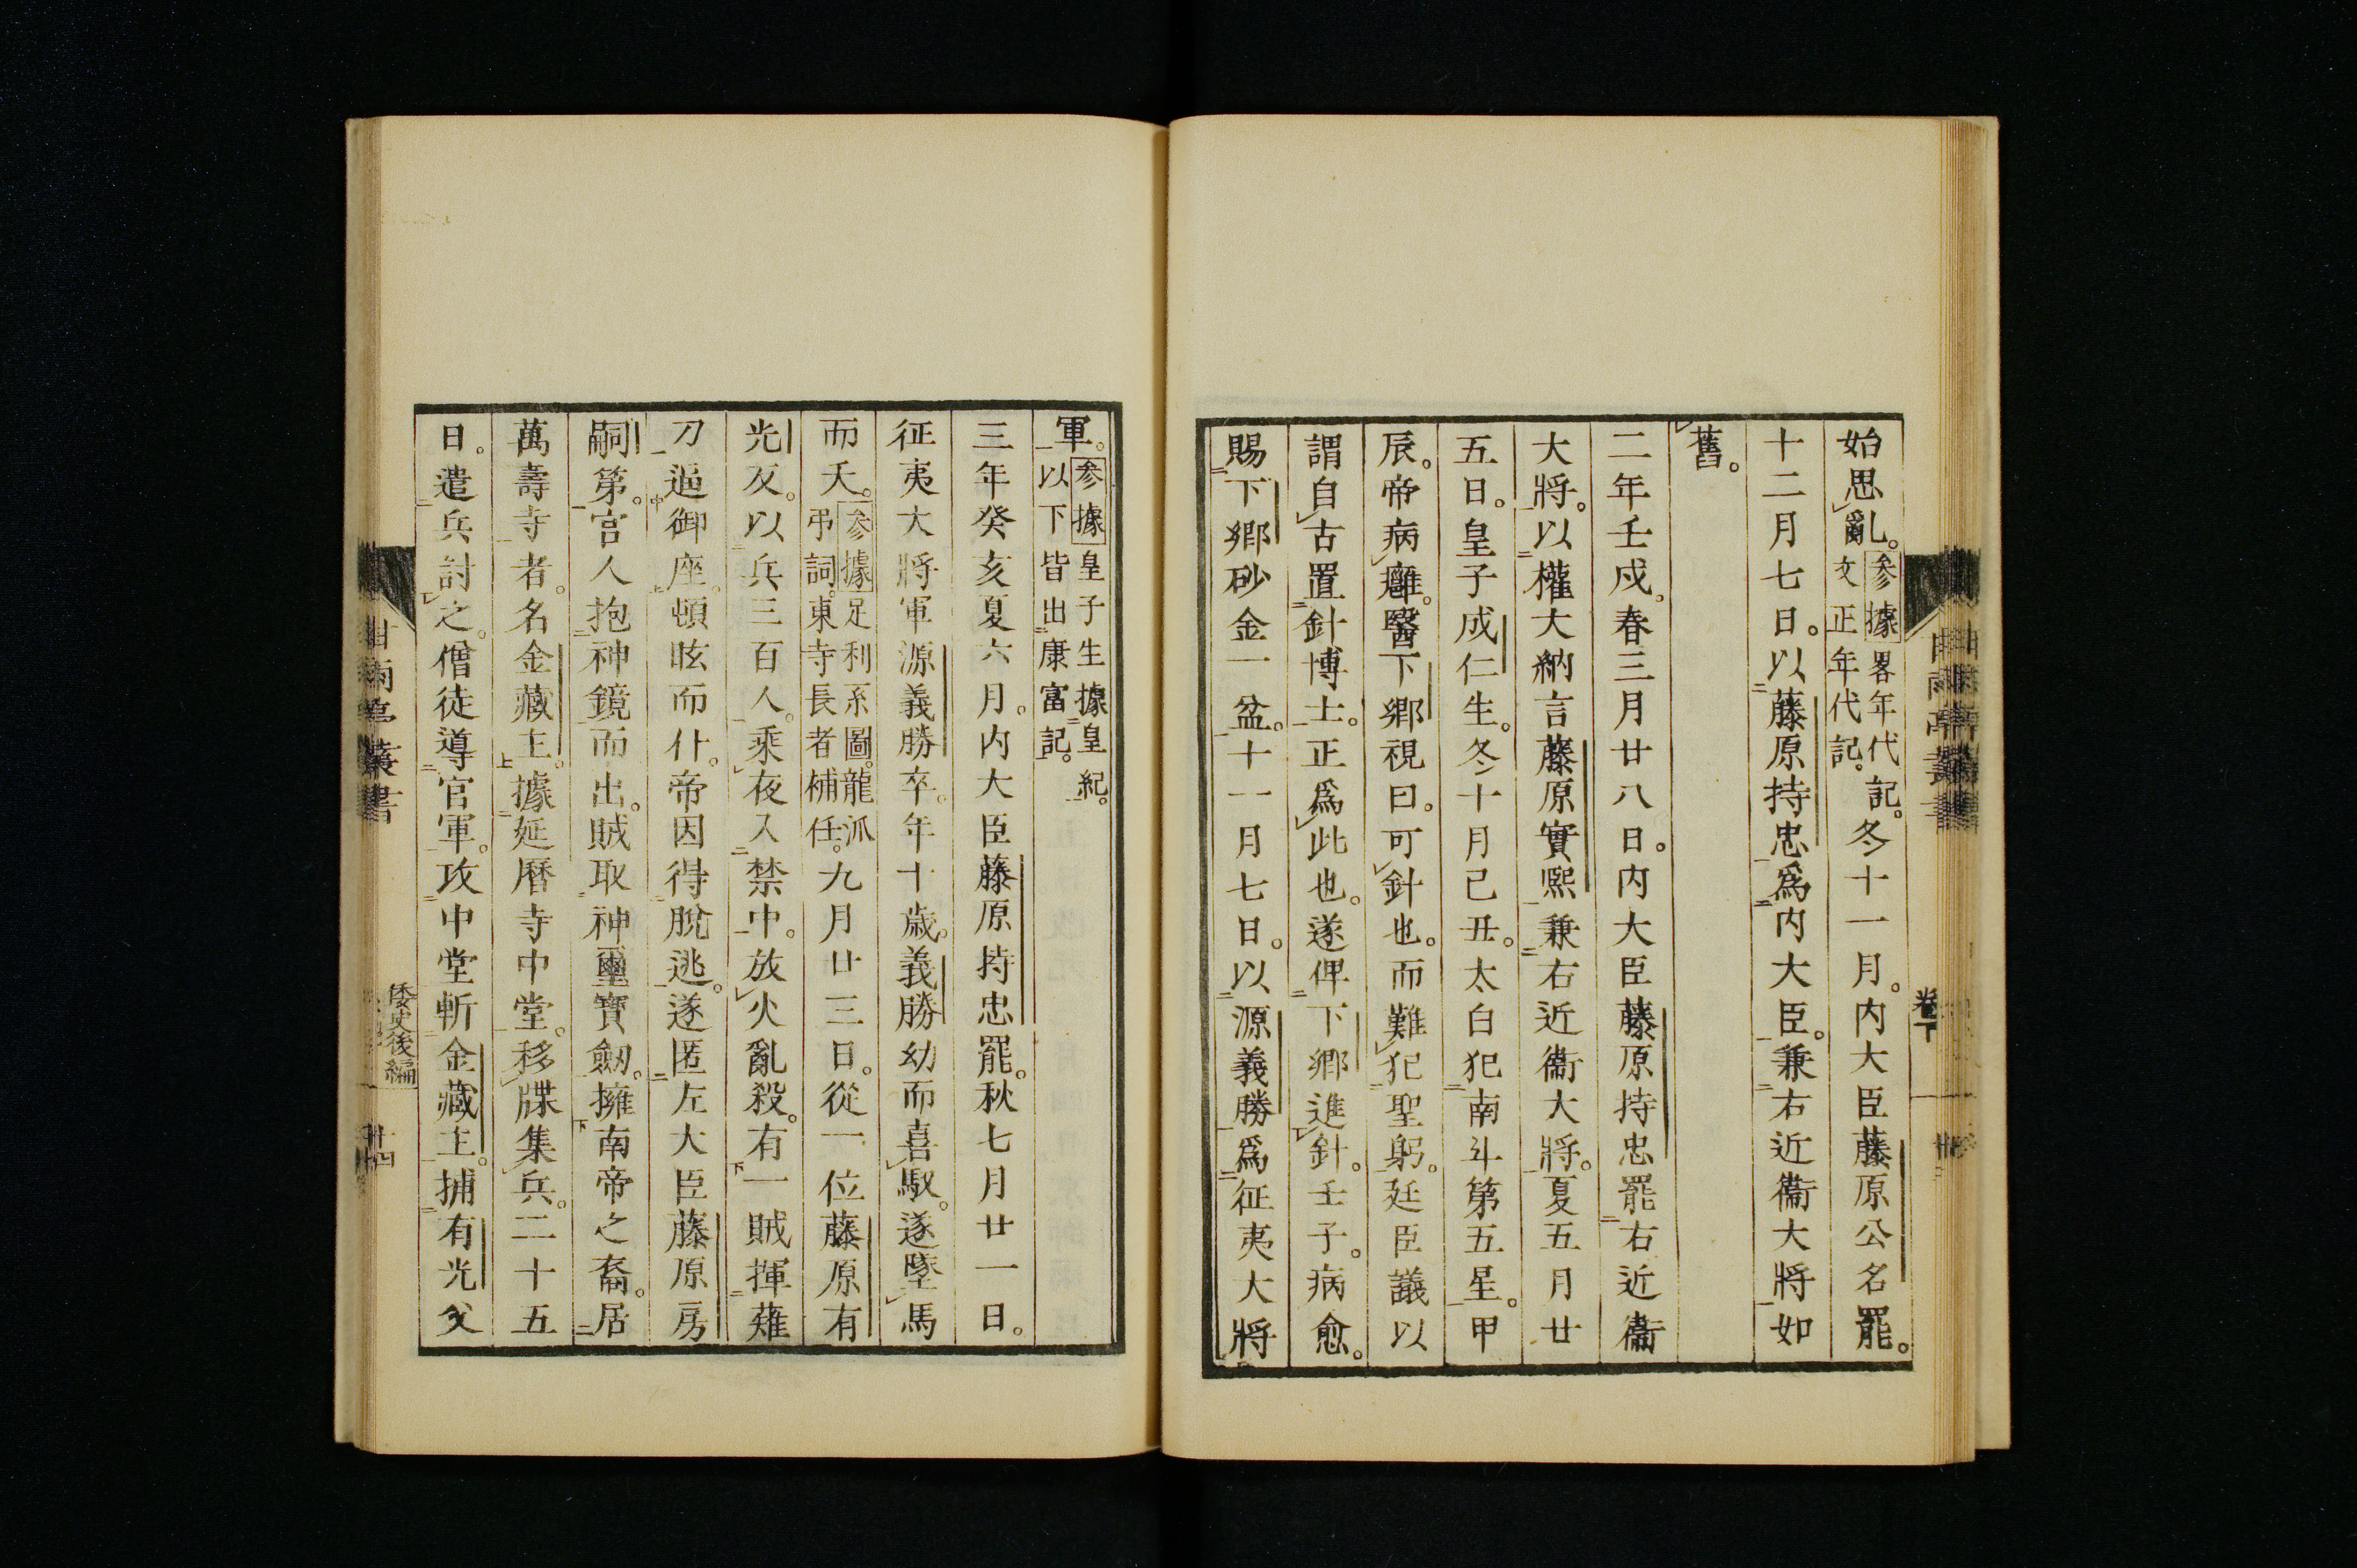 始思亂。參據畧年代記。文正年代記。冬十一月。内大臣藤原公名罷。
十二月七日。以藤原持忠爲内大臣。兼右近衞大將如
舊。
二年壬戌。春三月廿八日。内大臣藤原持忠罷右近衞
大將。以權大納言藤原實熙兼右近衞大將。夏五月廿
五日。皇子成仁生。冬十月己丑。太白犯南斗第五星。甲
辰。帝病癰。醫下郷視曰。可針也。而難犯聖躬。廷臣議以
謂自古置針博士。正爲此也。遂俾下郷進針。壬子。病愈。
賜下郷砂金一盆。十一月七日。以源義勝爲征夷大將
卷下
軍。參據皇子生據皇紀。以下皆出康富記。
三年癸亥夏六月。内大臣藤原持忠罷。秋七月廿一日。
征夷大將軍源義勝卒。年十歲。義勝幼而喜馭。遂墜馬
而夭。參據足利系圖。龍派弔詞。東寺長者補任。九月廿三日。從一位藤原有
光反。以兵三百人。乘夜入禁中。放火亂殺。有一賊揮薙
刀逼御座。頓眩而仆。帝因得脫逃。遂匿左大臣藤原房
嗣第。宮人抱神鏡而出。賊取神璽寶劒。擁南帝之裔。居
萬壽寺者。名金藏主。據延曆寺中堂。移牒集兵。二十五
日。遣兵討之。僧徒導官軍。攻中堂斬金藏主。捕有光父
甘雨亭叢書
倭史後編
廿四